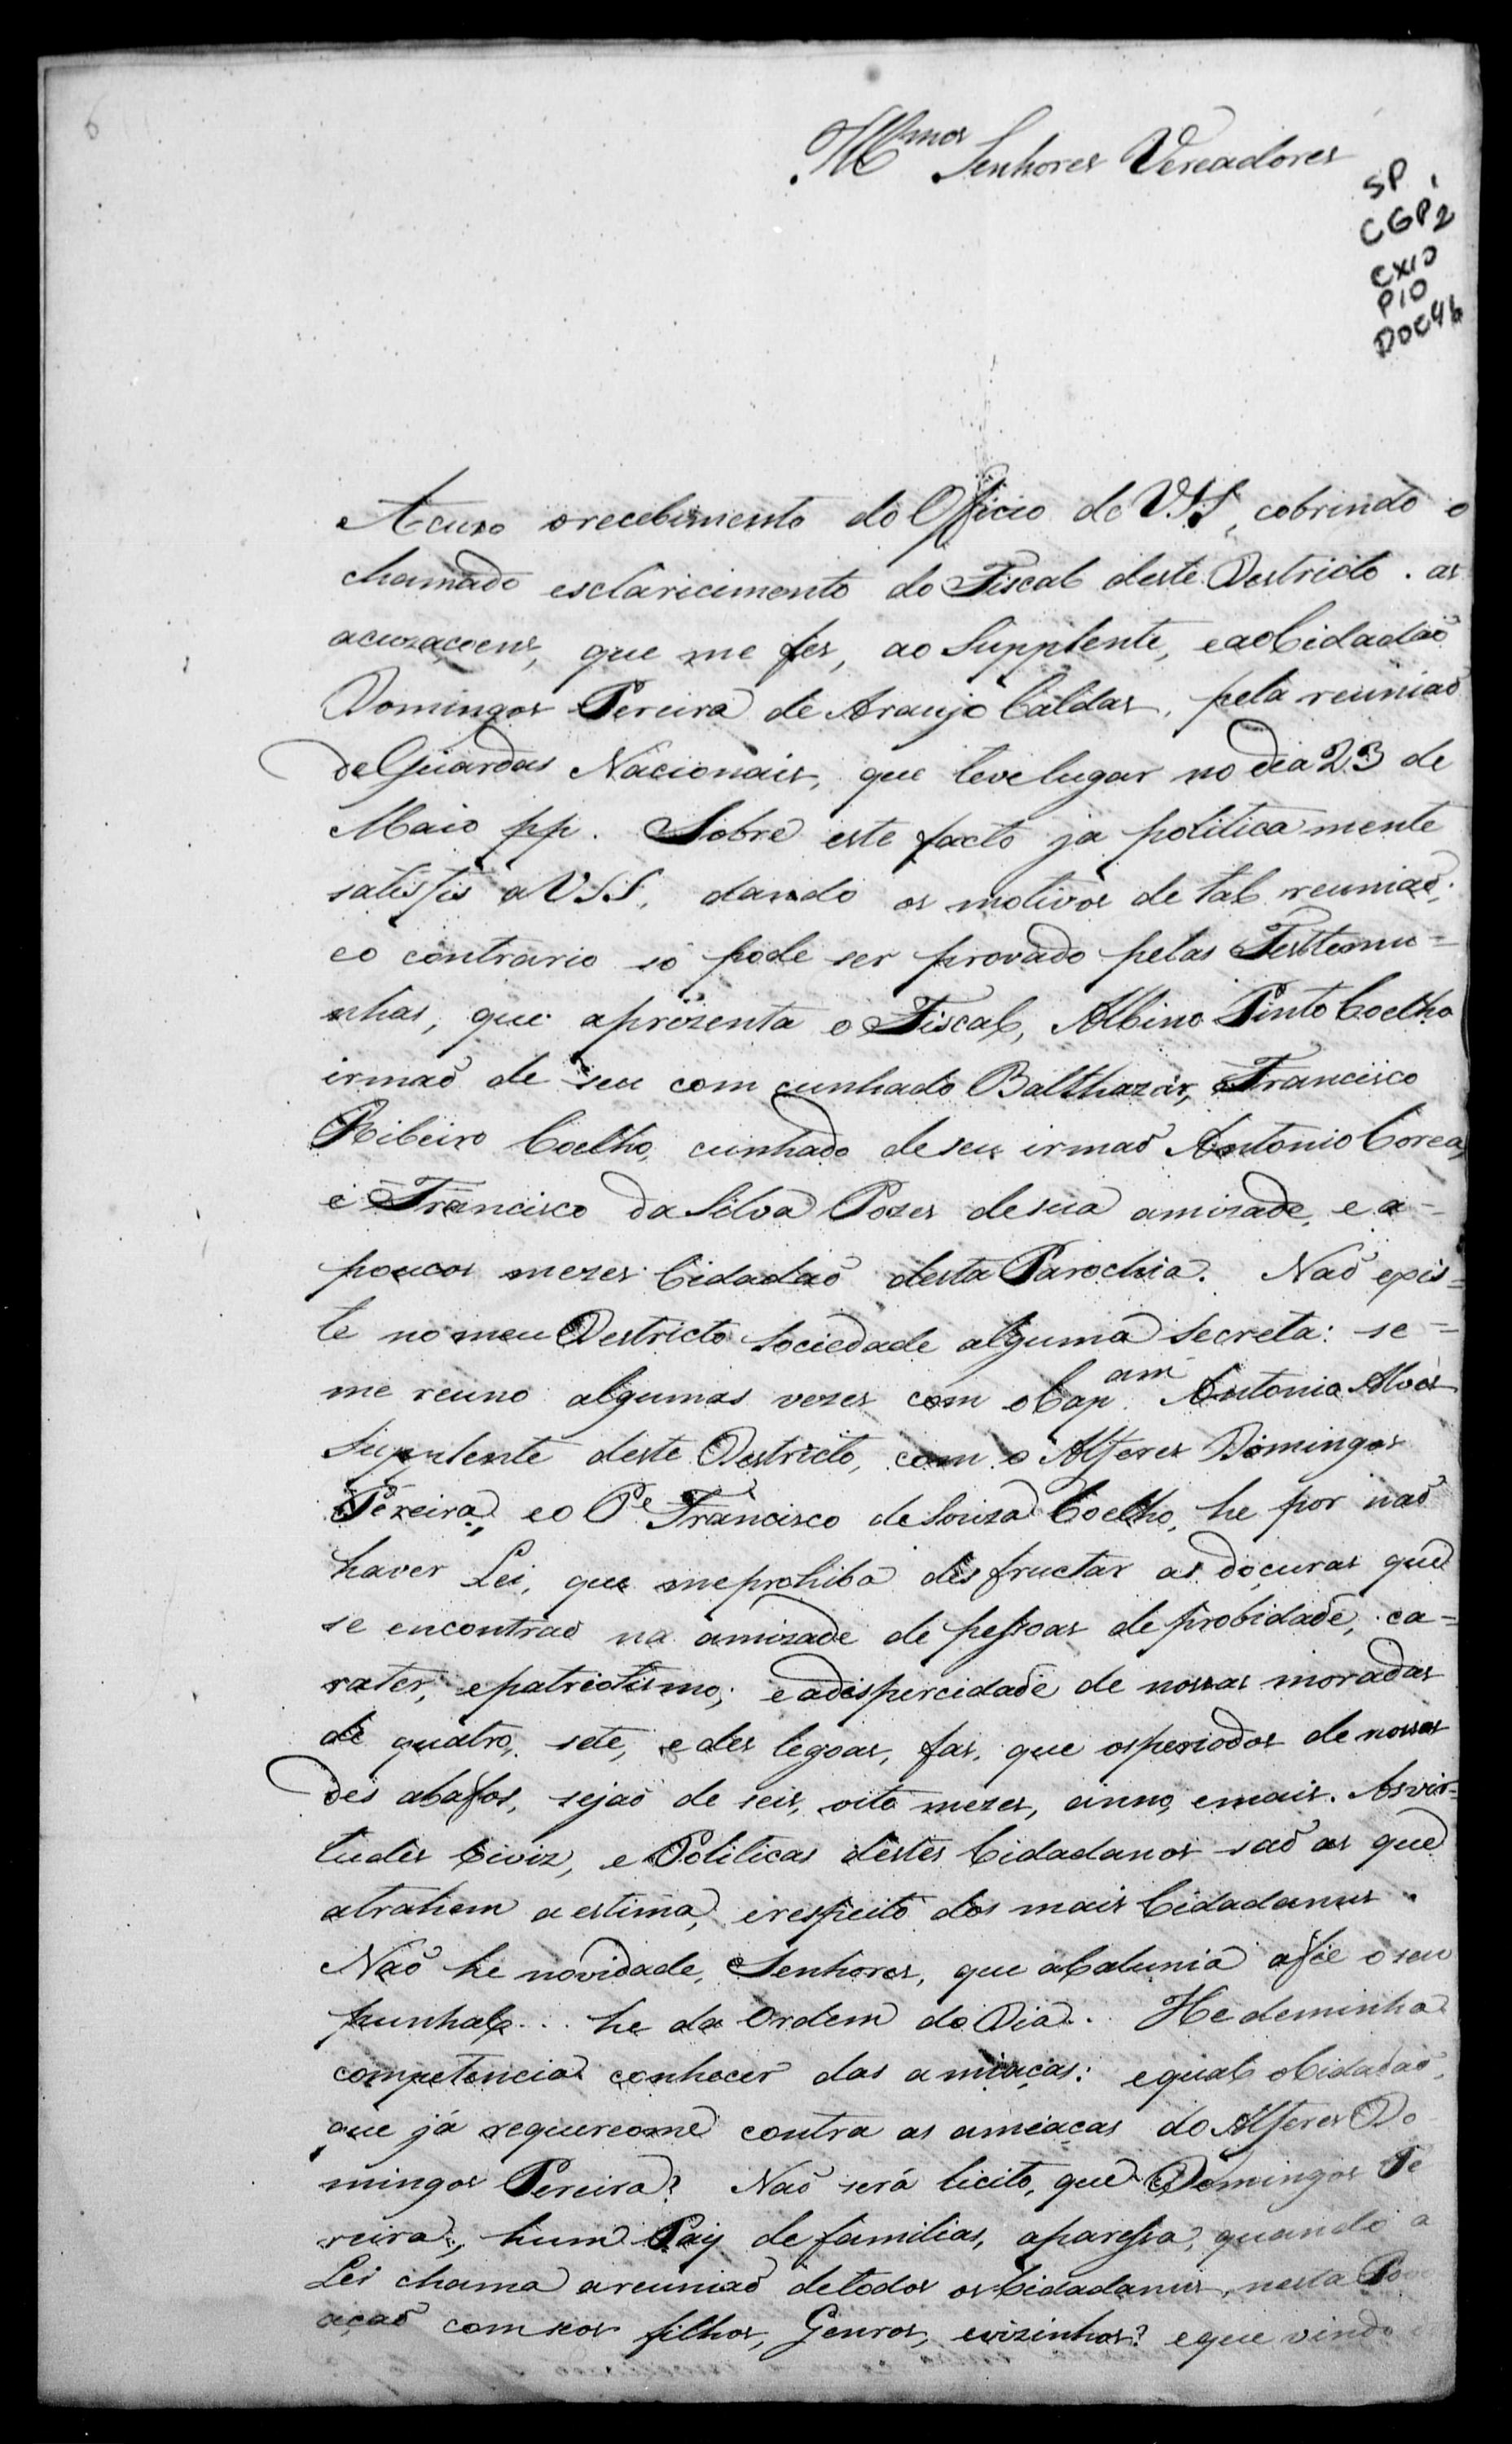 6
Illmos Senhores Vereadores
SP 1
CGP2
CX10
P10
DOC46
Acuzo o recebimento do Officio de VSS, cobrindo o
chamado esclaricimento do Fiscal deste Destricto. as
acuzaçoens, que me fes, ao Supplente, e ao Cidadaõ
Domingos Pereira de Araujo Caldas, pela reuniaõ
de Guardas Nacionais, que teve lugar no dia 23 de
Maio pp. Sobre este facto ja politica mente
satisfis a VSS, dando os motivos de tal reuniaõ;
e o contrario só pode ser provado pelas Testtemu=
nhas, que aprezenta o Fiscal, Albino Pinto Coelho
irmaõ de seu com cunhado Balthazar, Francisco
Ribeiro Coelho, cunhado de seu irmaõ Antonio Corea,
e Francisco da Silva Pozes de sua amizade, e a=
poucos mezes Cidadaõ desta Parochia. Naõ exis=
te no meu Destricto Sociedade alguma Secreta: se=
me reuno algumas vezes com o Capam Antonio Alves
Supplente deste Destricto, com o Alferes Domingos
Pereira, e o Pe Francisco de Souza Coelho, he por naõ
haver Lei, que me prohiba desfructar as doçuras que
se encontraõ na amizade de pessoas de probidade, ca=
rater, e patriotismo; e a dispercidade de nossas moradas
de quatro, sete, e des legoas, fas, que os periodos de nossos
des abafos, sejaõ de seis, oito mezes, anno, e mais. As vir=
tudes Civiz, e Politicas destes Cidadanos saõ as que
atrahem a estima, e respeito dos mais Cidadanus.
Naõ he novidade, Senhores, que a Calunia afie o seu
punhal... he da Ordem do Dia. He de minha
competencia conhecer das amiaças: e qual o Cidadaõ,
que já requereome contra as ameaças do Alferes Do
mingos Pereira? Naõ será licito, que Domingos Pe
reira, hum Pay de familias, aparessa, quando a
Lei chama a reuniaõ de todos os Cidadanus, nesta Povo
açaõ com seos filhos, Genros, e vizinhos? e que vindo